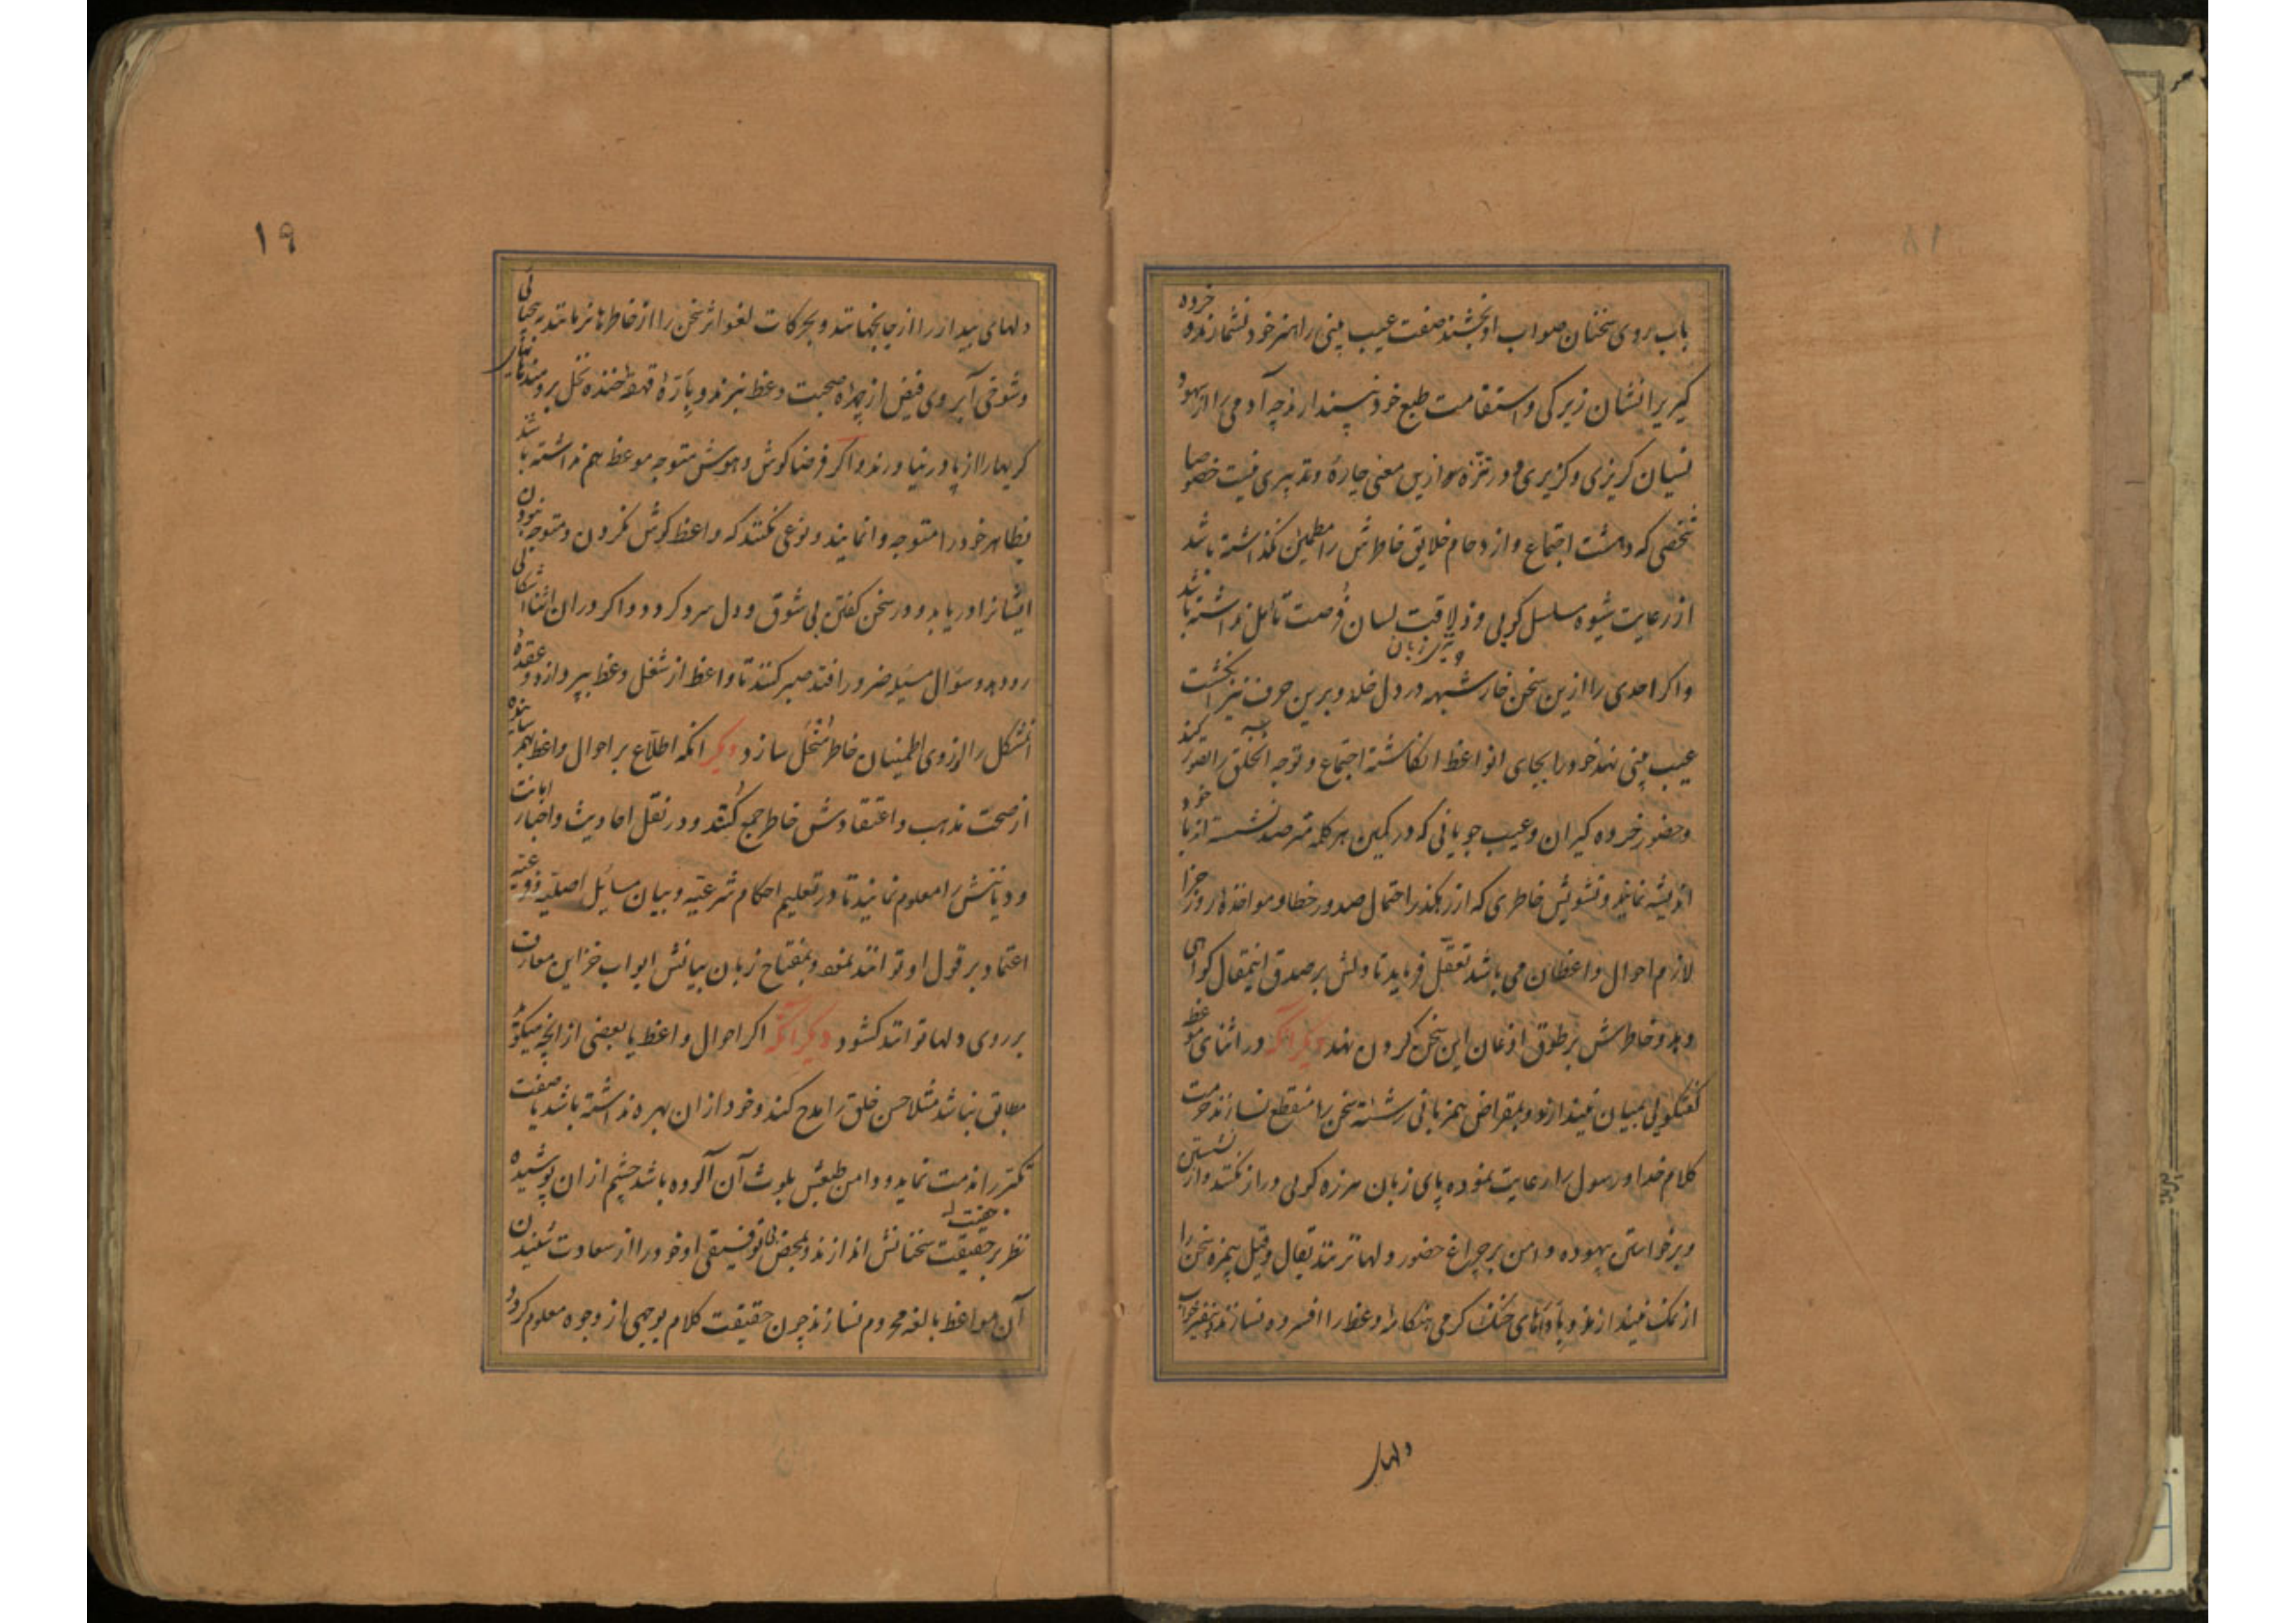 باب روی سخنان صواب او بخشند صفت عیب بینی را هنر خود نشمارند و خرده
کیریرا نشان زیرکی و استقامت طبع خود نپسندارند چه آدمی را از سهو و
نسیان کریزی و کزیری و در تنزه سوا ازین معنی چارهٔ و تدبیری نیست خصوصا
شخصی که دهشت اجتماع و ازدحام خلایق خاطرش را مطمین نکذاشته باشد
از رعایت شیوه سلسل کویی و ذلاقت لسان فرصت تأمل نداشته باشد
و تیزی زبان
و اکر احدی را ازین سخن خار شبهه در دل خلد و برین حرف نیز انکشت
عیب بینی نهد خود را بجای آن واعظ انکاشته اجتماع و توجه آنخلق را تصور کند
و حضور خرده کیران و عیب جویانی که در کمین هر کلمه مترصد نشسته اند با خود
اندیشه نماید و تشویش خاطری که از رهکذر احتمال صدور خطا و مواخذه روز جزا
لازم احوال واعظان می باشد تعقل فرماید تا دلش بر صدق اینمقال کواهی
دهد و خاطرش بر طوق اذعان این سخن کردن نهد دیکر آنکه در اثنای موعظه
کفتکویی بمیان نیندازند و بمقراض همزبانی رشتهٔ سخن را منقطع نسازند حرمت
کلام خدا و رسول را رعایت نموده پای زبان هرزه کویی دراز نکنند و از نشستن
و برخواستن بیهوده دامن بر چراغ حضور دلها نزنند بقال و قیل بیمزه سخن را
از نمک نیندازند و باداهای خنک کرمی هنکامهٔ وعظ را افسرده نسازند بنفیر خواب
دلهای
۱۸
۱۹
دلهای بیدار را از جا نجهانند و بحرکات لغو اثر سخن را از خاطرها نرمانند به بیحیائی
و شوخی آبروی فیض از چهرهٔ صحبت وعظ نبرند و بارّهٔ قهقهه خنده نخل برومند
کریهارا از پا در نیاورند و اکر فرضا کوش و هوش متوجه موعظ هم نداشته باشند
بظاهر خود را متوجه وانمایند و نوعی نکنند که واعظ کوش نکردن و متوجه نبودن
ایشانرا دریابد و در سخن کفتن بی شوق و دل سرد کردد و اکر در ان اثنا اشکالی
رو دهد و سؤال مسیله ضرور افتد صبر کنند تا واعظ از شغل وعظ بپردازد و عقده
آنمشکل را از روی اطمینان خاطر منحل سازد دیکر آنکه اطلاع بر احوال واعظ بهم رسانیده
از صحت مذهب و اعتقادش خاطر جمع کنند و در نقل احادیث و اخبار امانت
و دیانتش را معلوم نمایند تا در تعلیم احکام شرعیّه و بیان مسایل اصلیّه و فرعیّه
اعتماد بر قول او توانند نمود و بمفتاح زبان بیانش ابواب خزاین معارف
بر روی دلها توانند کشود دیکر آنکه اکر احوال واعظ با بعضی از آنچه میکوید
مطابق نباشد مثلا حسن خلق را مدح کند و خود از ان بهره نداشته باشد یا صفت
تکبر را مذمت نماید و دامن طبعش بلوث آن آلوده باشد چشم از ان پوشیده
نظر بر حقیقت سخنانش اندازند و بمحض بی توفیقی او خود را از سعادت شنیدن
آن مواعظ بالغه محروم نسازند چون حقیقت کلام بوجهی از وجوه معلوم کردد